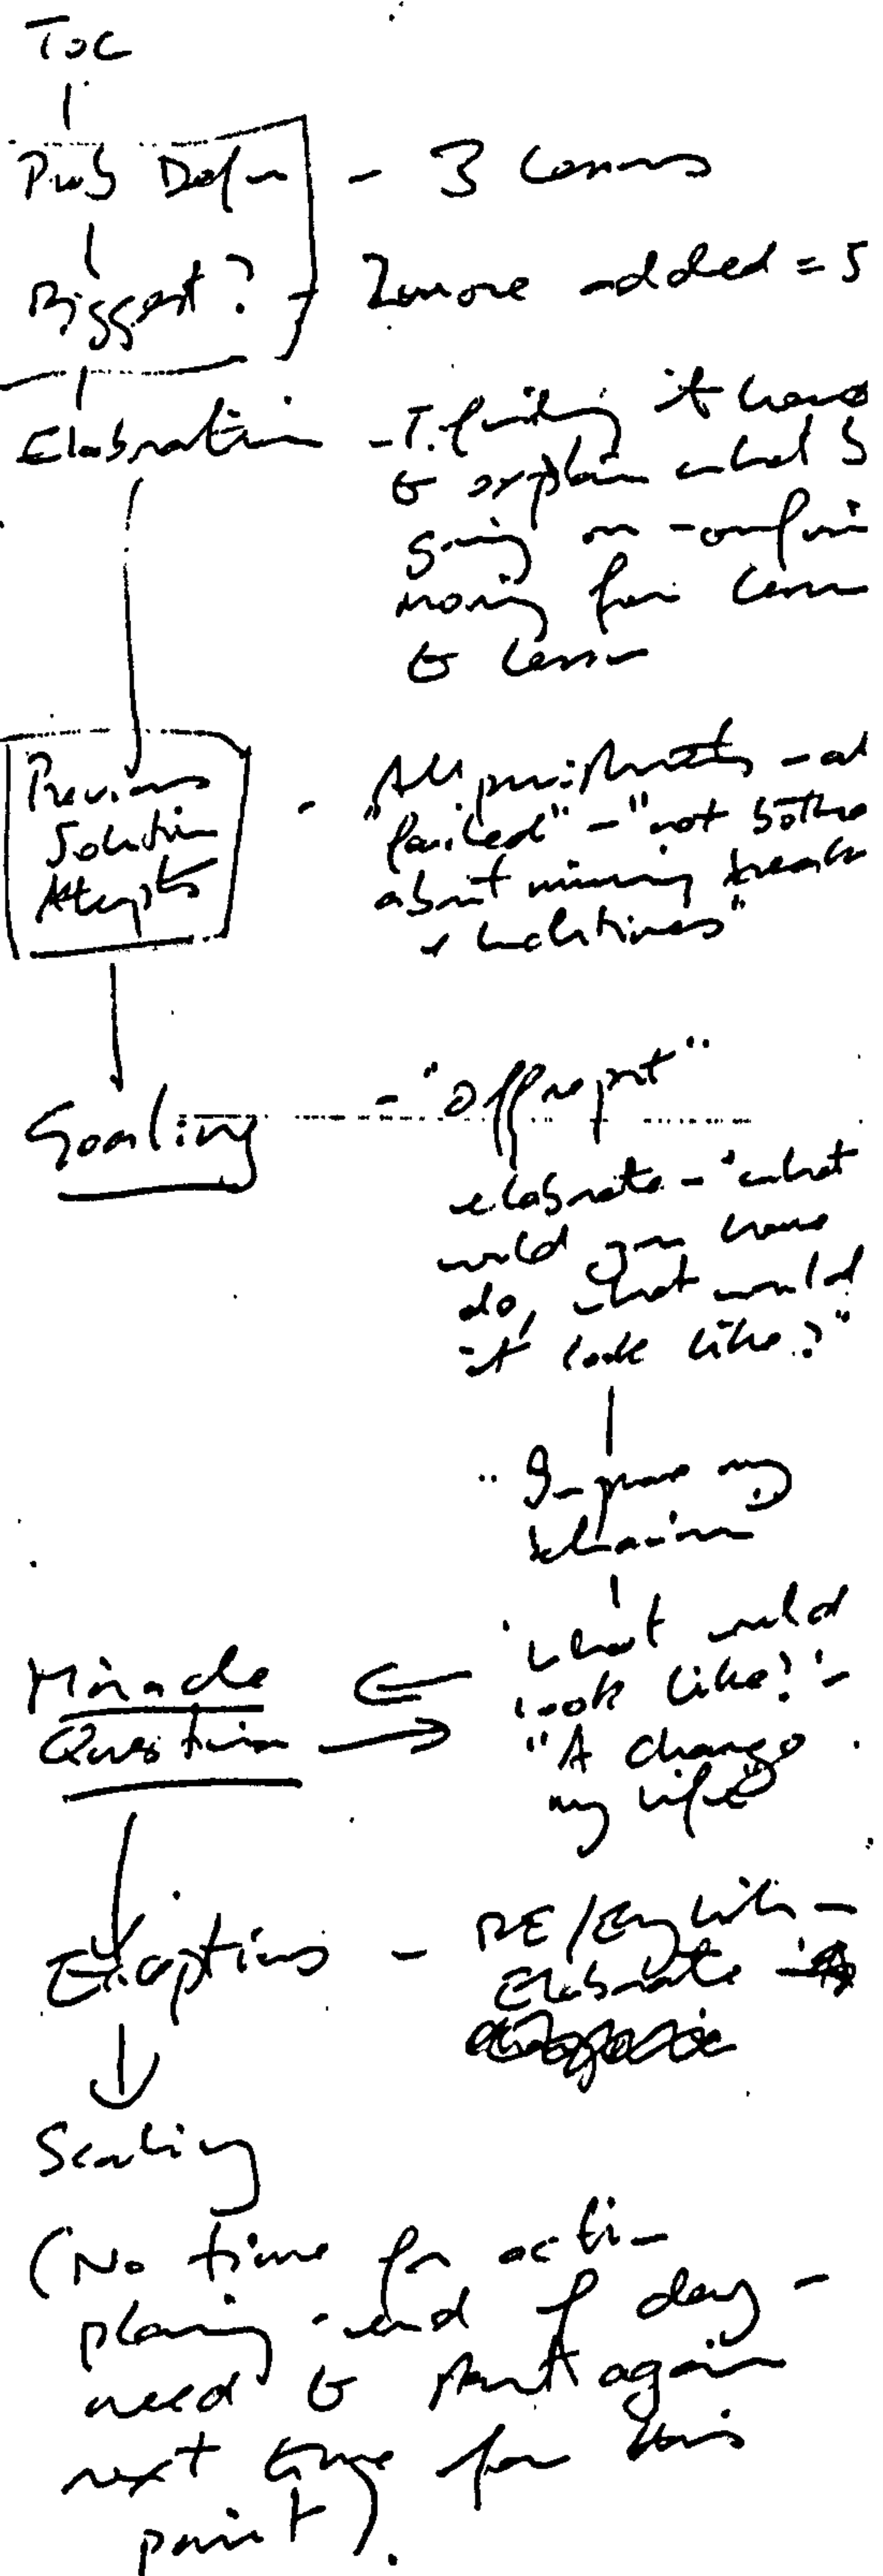 ToC
Prob Defn - 3 Lessons
Biggest? - 2 more added = 5
Elaboration - T. finding it hard
to explain what is
going on - confusi
moving from lesson
to lesson
Previous
Solution
Attempts
- All punishments - all
"failed" - "not bothered
about missing breaks
& lunchtimes"
Goaling - "off report"
elaborate - "what
would you have
do, what would
it look like?"
"Improve my
behaviour"
'what would
look like?' -
"A change
my life"
Miracle
Question
Exceptions - RE/English -
Elaborate -
Scaling
(No time for action
planning - end of day -
need to start again
next time from this
point).